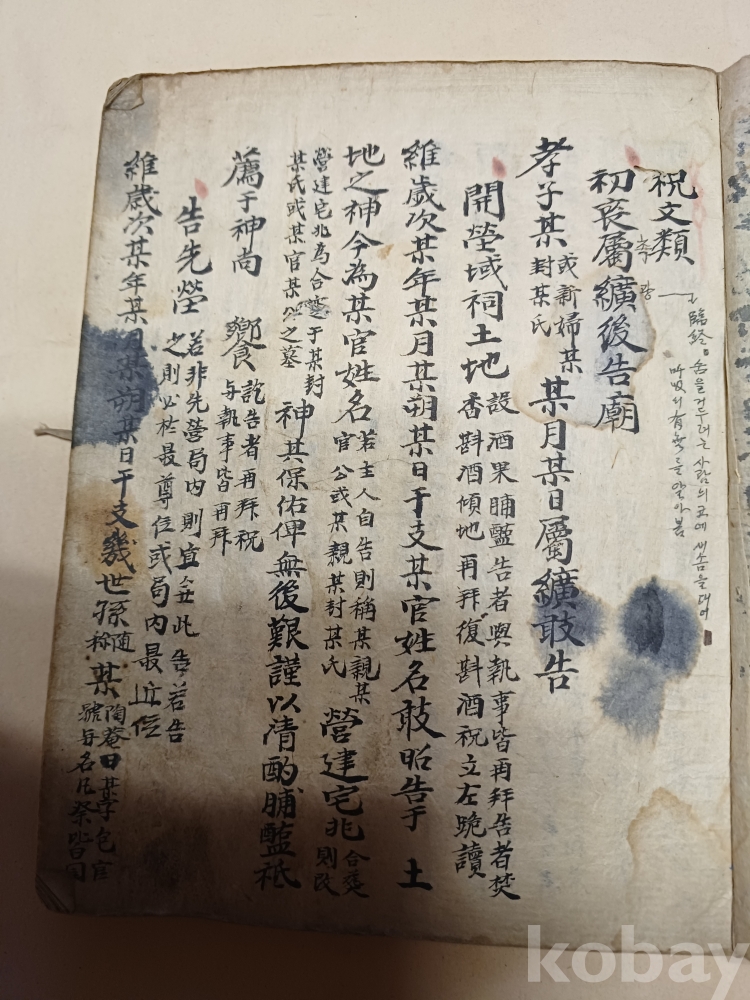 祝文類
初喪屬纊後告廟
촉 광
臨終。솜을 거두려는 사람의 코에 새솜을 대어
마시고 有無를 알아봄
孝子某 或新婦某封某氏 某月某日屬纊敢告
開塋域祠土地 設酒果脯醢告者與執事皆再拜告者焚香斟酒傾地再拜復斟酒祝立左跪讀
維歲次某年某月某朔某日干支某官姓名敢昭告于 土
地之神今為某官姓名 若主人自告則稱某親某官公或某親某封某氏 營建宅兆 合葬則改
營建宅兆為合葬于某封某氏或某官某公之墓 神其保佑俾無後艱謹以清酌脯醢祗
薦于神尚 饗 訖告者再拜祝與執事皆再拜
告先塋 若非先塋局內則宜無此告若告之則必於最尊位或局內最近位
維歲次某年某月某朔某日干支幾世孫 隨稱 某 陶菴曰某字包官號與名凡祭皆同
kobay